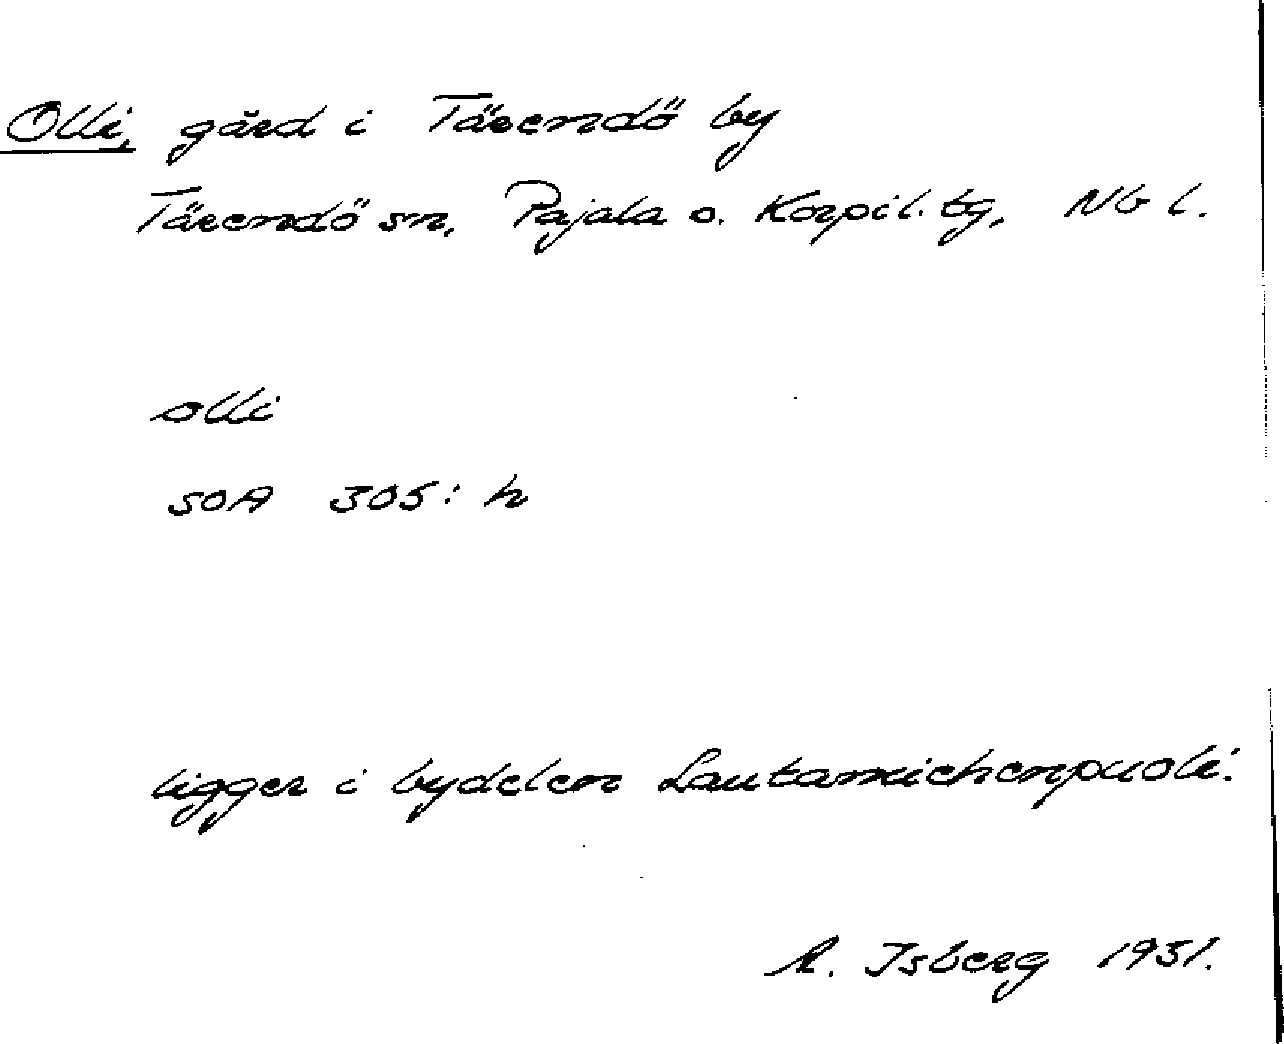 Olli, gård i Tärendö by
Tärendö sn, Pajala o. Korpil. tg, Nb l.
olli
SOA 305: h
ligger i bydelen Lautamichenpuoli.
R. Isberg 1931.